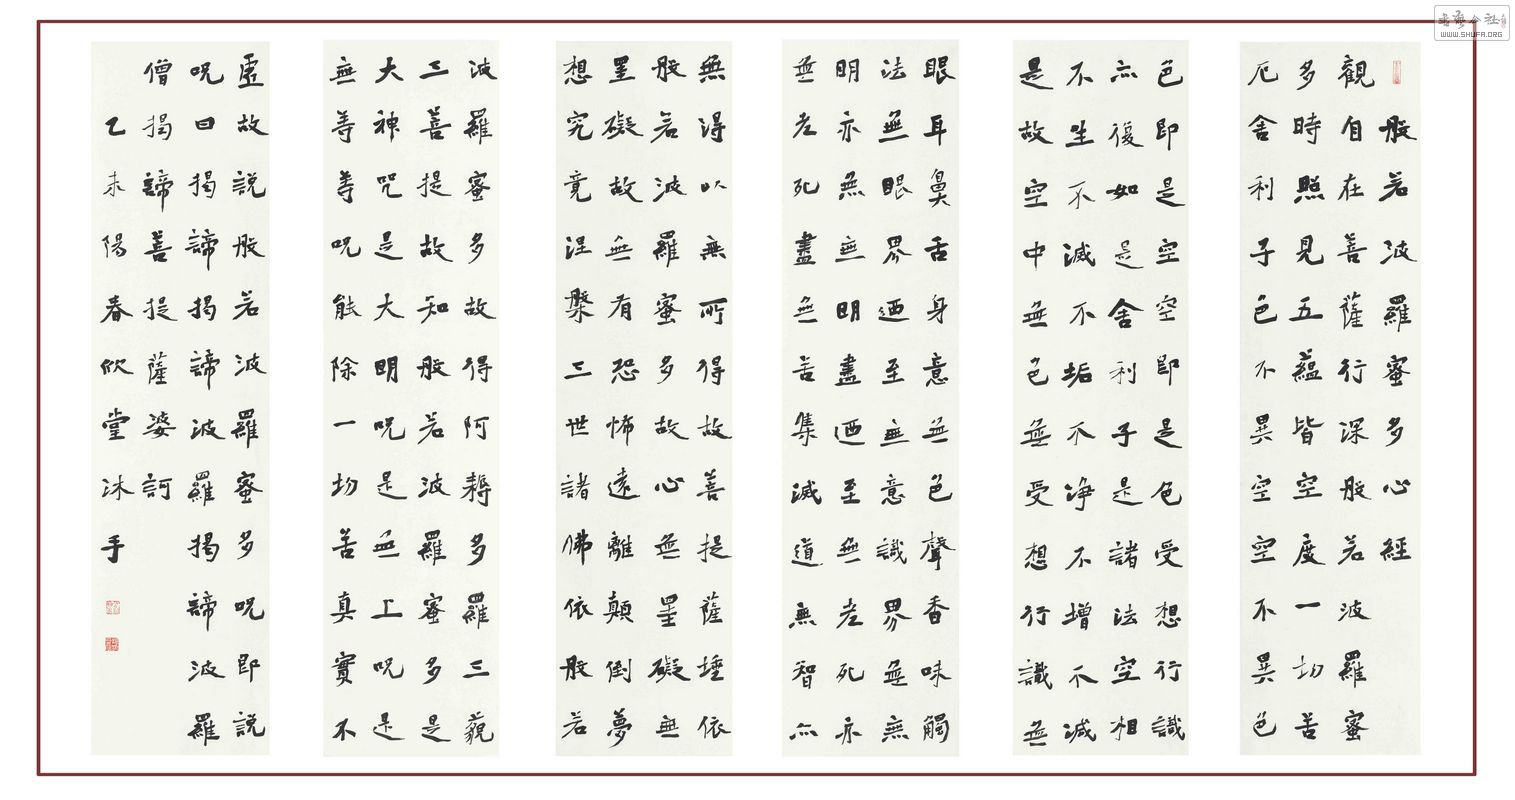 般若波羅蜜多心經
觀自在菩薩行深般若波羅蜜
多時照見五蘊皆空度一切苦
厄舍利子色不異空空不異色
色即是空空即是色受想行識
亦復如是舍利子是諸法空相
不生不滅不垢不净不增不減
是故空中無色無受想行識無
眼耳鼻舌身意無色聲香味觸
法無眼界迺至無意識界無無
明亦無無明盡迺至無老死亦
無老死盡無苦集滅道無智亦
無得以無所得故菩提薩埵依
般若波羅蜜多故心無罣礙無
罣礙故無有恐怖遠離顛倒夢
想究竟涅槃三世諸佛依般若
波羅蜜多故得阿耨多羅三藐
三菩提故知般若波羅蜜多是
大神咒是大明咒是無上咒是
無等等咒能除一切苦真實不
虛故說般若波羅蜜多咒即說
咒曰揭諦揭諦波羅揭諦波羅
僧揭諦菩提薩婆訶
乙未陽春欣堂沐手
書藝公社
WWW.SHUFA.ORG